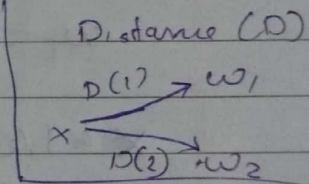 Distance (D)
D(1) w₁
x
D(2) w₂